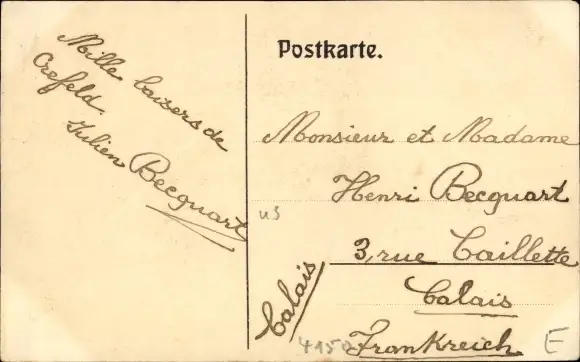 Mille baisers de
Crefeld.
Julien Becquart
Postkarte.
Monsieur et Madame
Henri Becquart
3, rue Caillette
Calais
Frankreich
Calais
us
4150
E